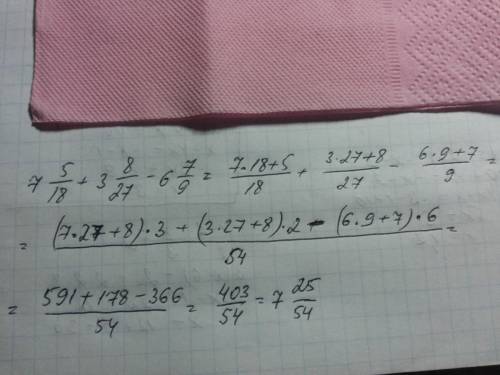 7 5/18 + 3 8/27 - 6 7/9 = (7·18+5)/18 + (3·27+8)/27 - (6·9+7)/9 =
= ((7·27+8)·3 + (3·27+8)·2 - (6·9+7)·6)/54 =
= (591+178-366)/54 = 403/54 = 7 25/54